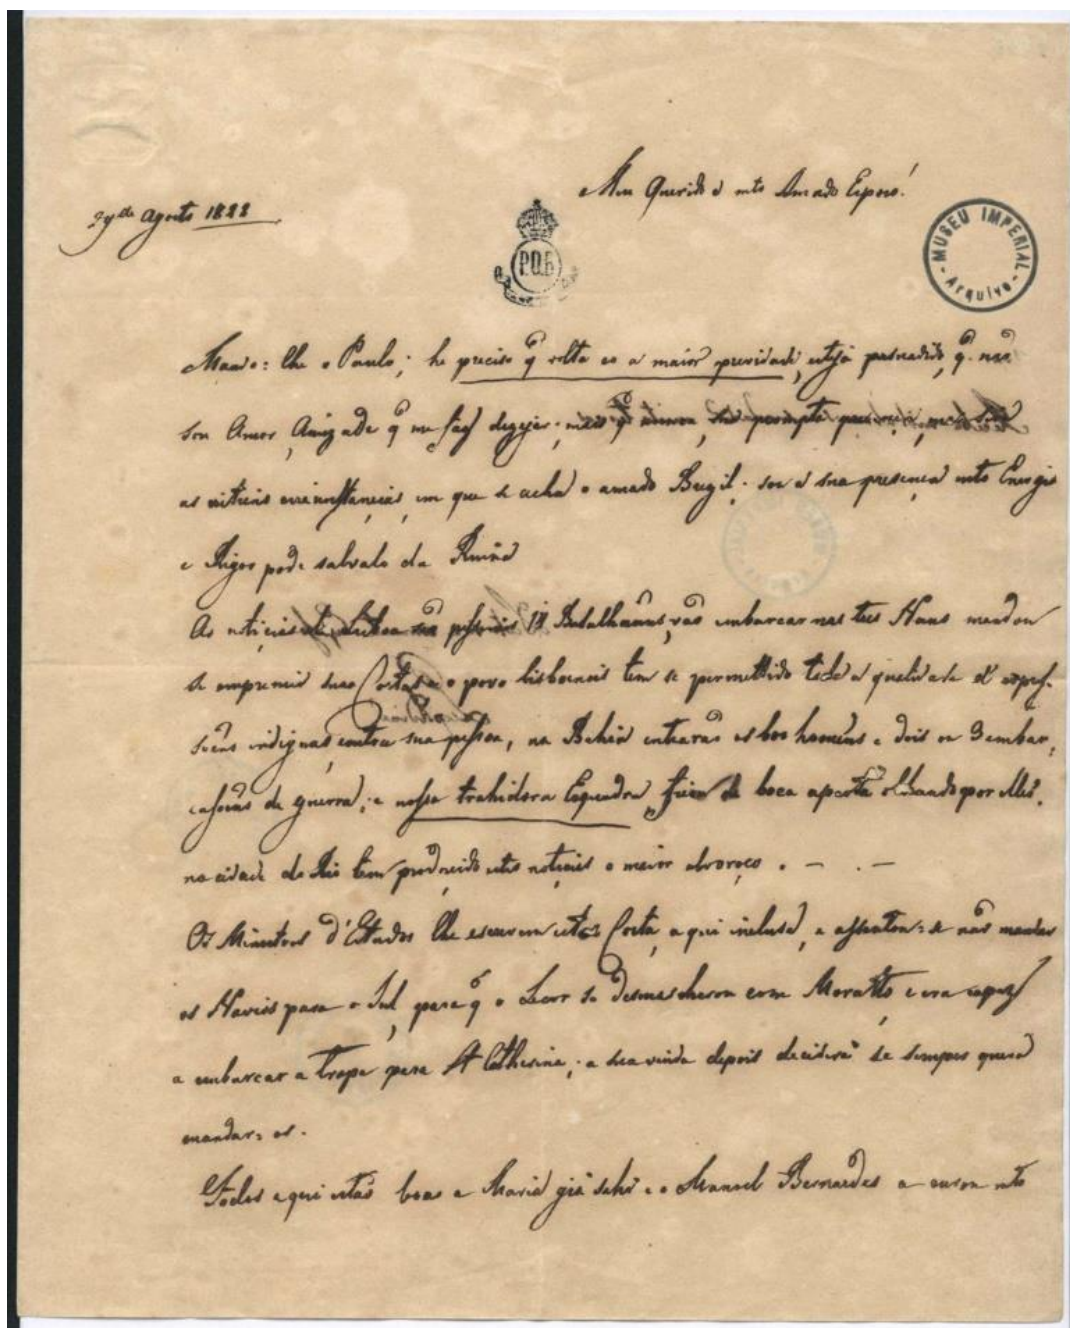 Meu Querido e mto Amado Esposo!
29 de Agosto 1822
P.O.B
MUSEU IMPERIAL
Arquivo
Mando-lhe o Paulo; he preciso q̃ volte co a maior brevidade, esteja persuadido, q̃ não
sou Amor, Amizade q̃ me faz dezejar, mais q̃ nunca, sua prompta
as criticas circunstancias, em que se acha o amado Brazil, so a sua presença mto Energia
e Rigor pode salvalo da Ruina
As noticias de Lisboa são pessimas 14 Batalhoẽs, vão embarcar nas tres Naus mandou
se empremir suas Cartas e o povo lisboense tem se permettido toda a qualidade d'expres-
soẽs indignas, contra sua pessoa, na Bahia entrarão os 600 homẽns e dois ou 3 embar-
cassoẽs de guerra, e nossa trahidora Esquadra ficou de boca aperta olhando por elles.
na cidade do Rio tem producido estas noticias o maior alvoroço . — . —
Os Ministros d'Estados lhe escrevem esta Carta, aqui inclusa, e assentou-se não mandar
os Navios para o Sul, para q̃ o Lecor se desmascherou com Moratto e era capaz
a embarcar a tropa para St Catherina; a sua vinda depois decidirá se sempre queira
mandar-os.
Todos aqui estão boas a Maria já sahi e o Manoel Bernardes a curou mto